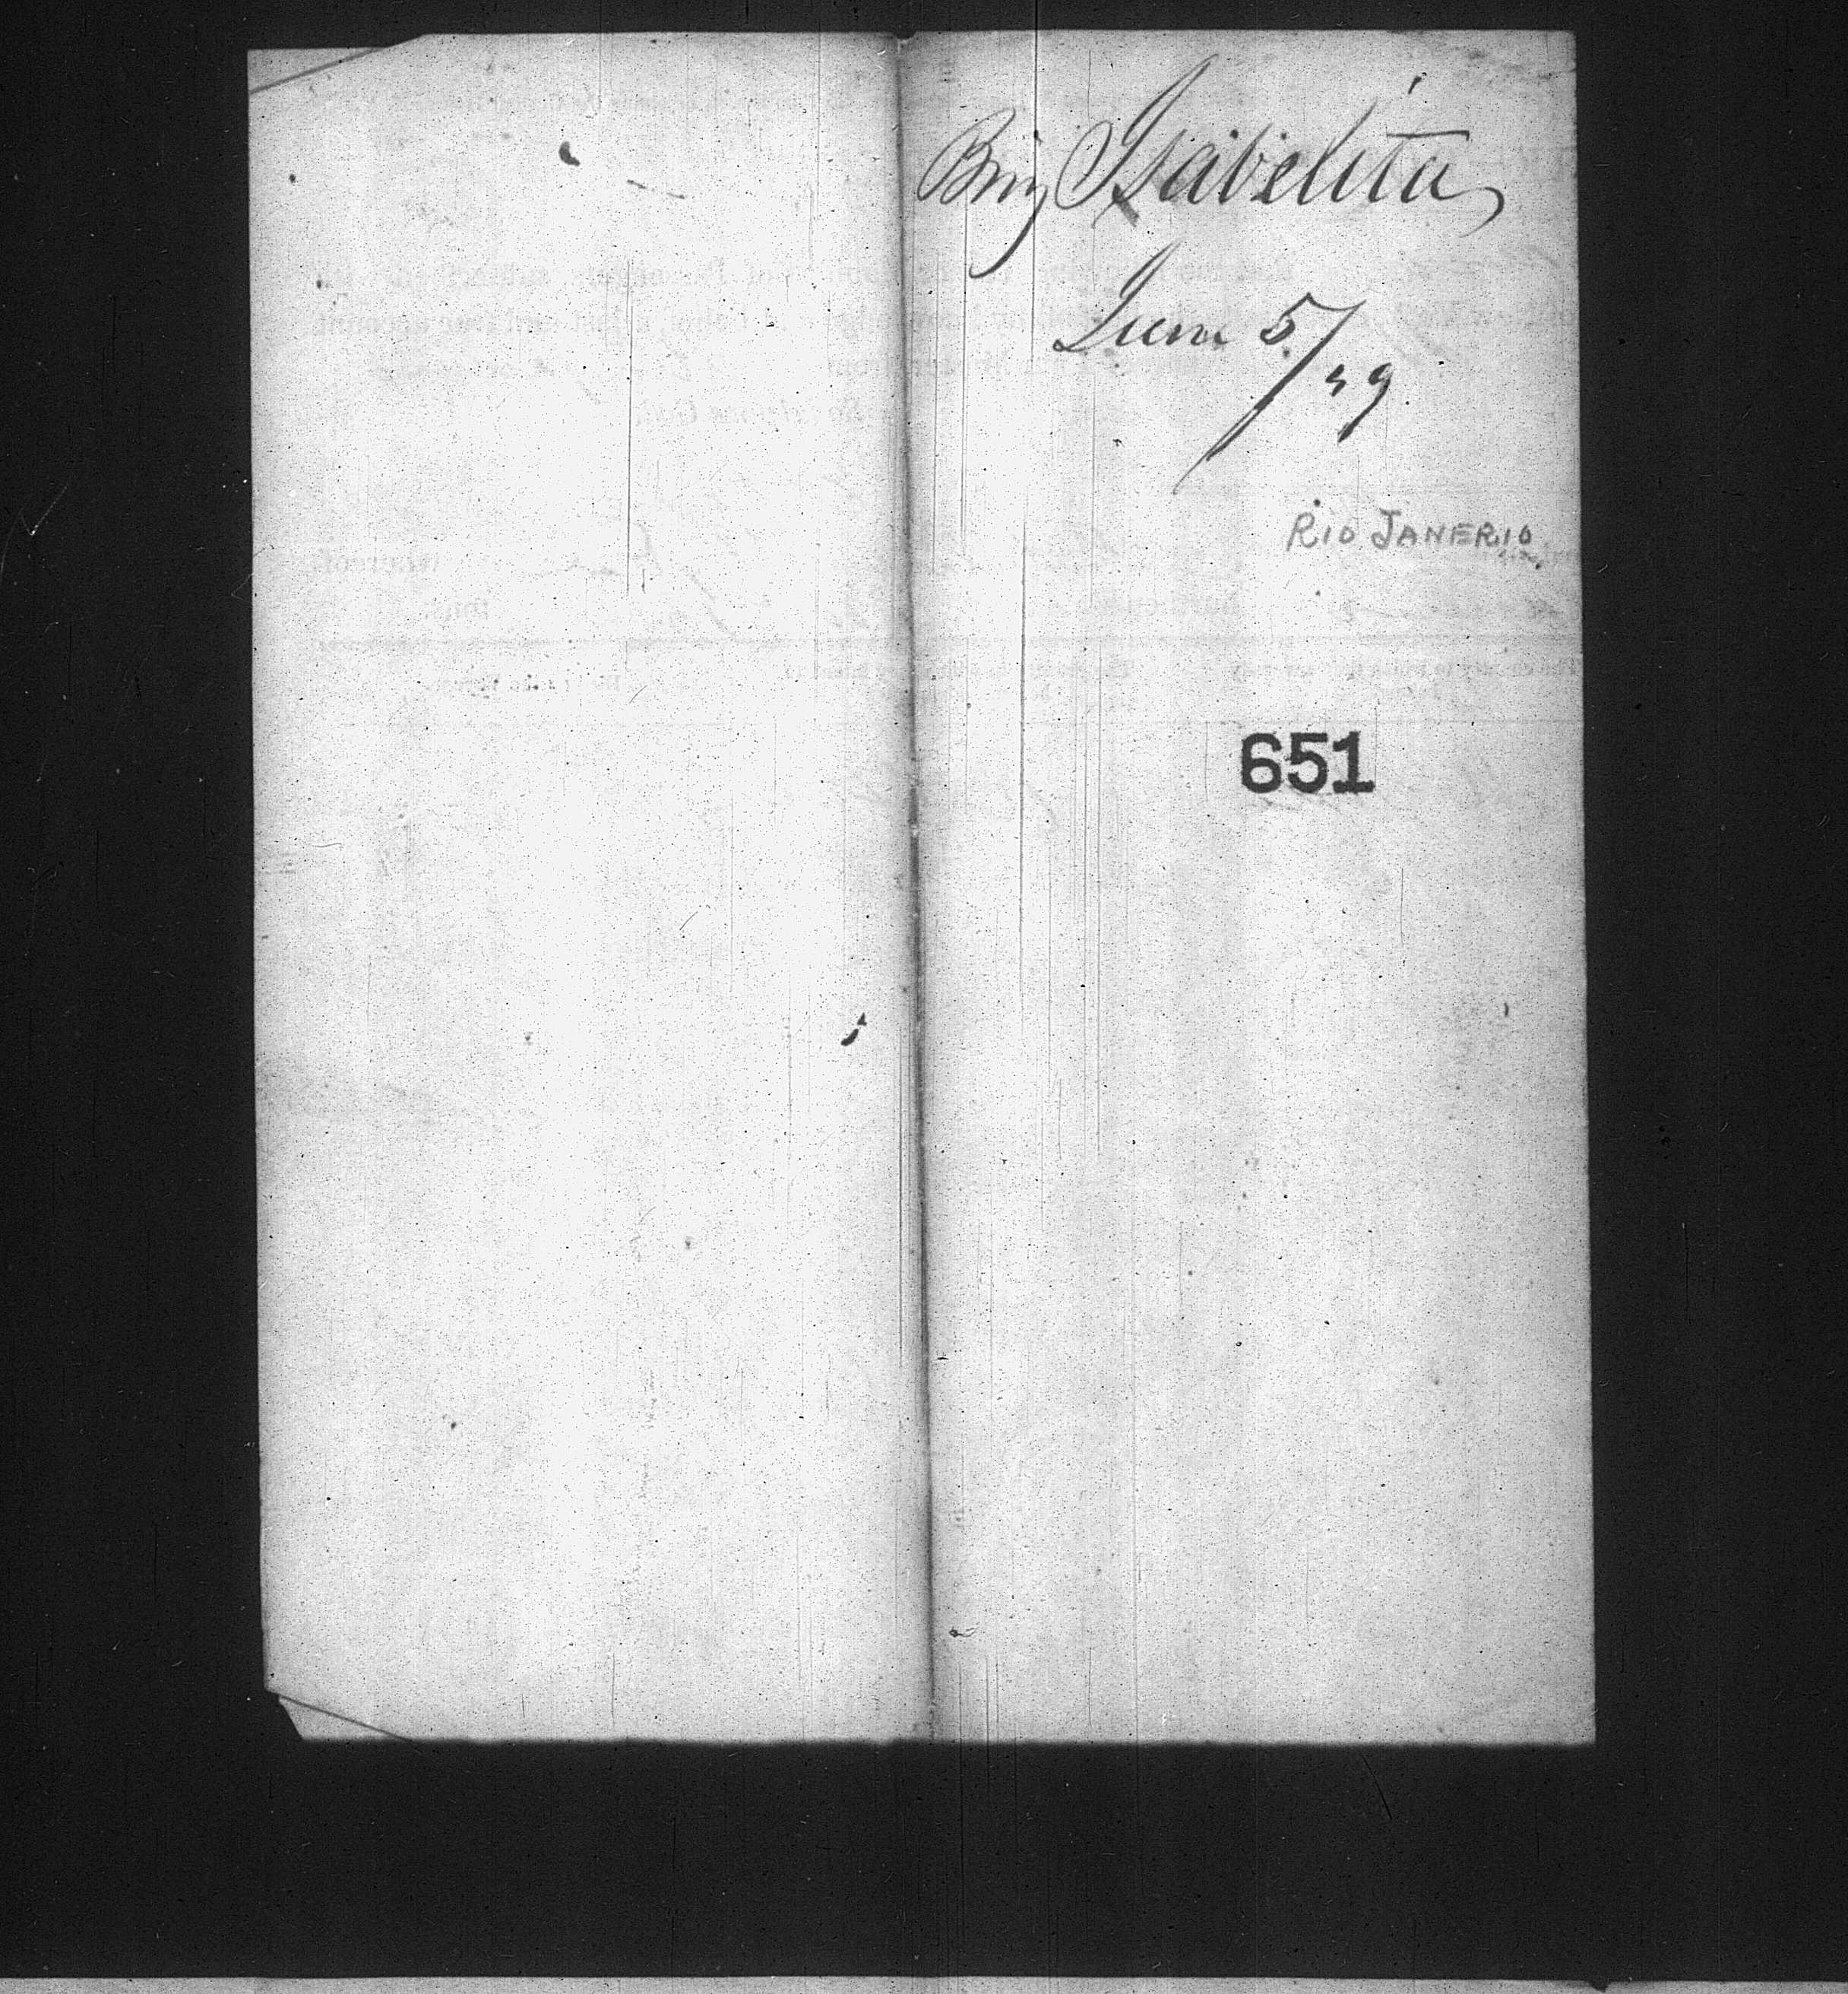 Brig Isabelita
June 5/49
RIO JANERIO
651